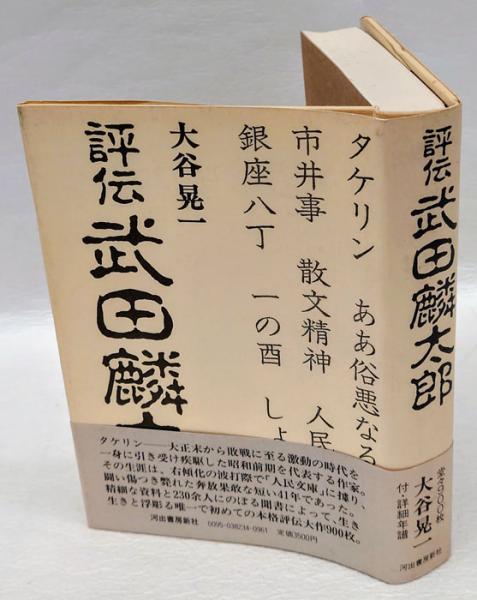 タケリン ああ俗悪なる
市井事 散文精神 人民
銀座八丁 一の酉 しょ
大谷晃一
評伝 武田麟
タケリン――大正末から敗戦に至る激動の時代を
一身に引き受け疾駆した昭和前期を代表する作家。
その生涯は、右傾化の波打際で「人民文庫」に拠り、
闘い傷つき斃れた奔放果敢な短い41年であった。
精細な資料と230余人にのぼる聞書によって、生き
生きと浮彫る唯一で初めての本格評伝大作900枚。
河出書房新社 0095-038234-0961 定価3500円
評伝 武田麟太郎
堂々900枚
大谷晃一
付・詳細年譜
河出書房新社